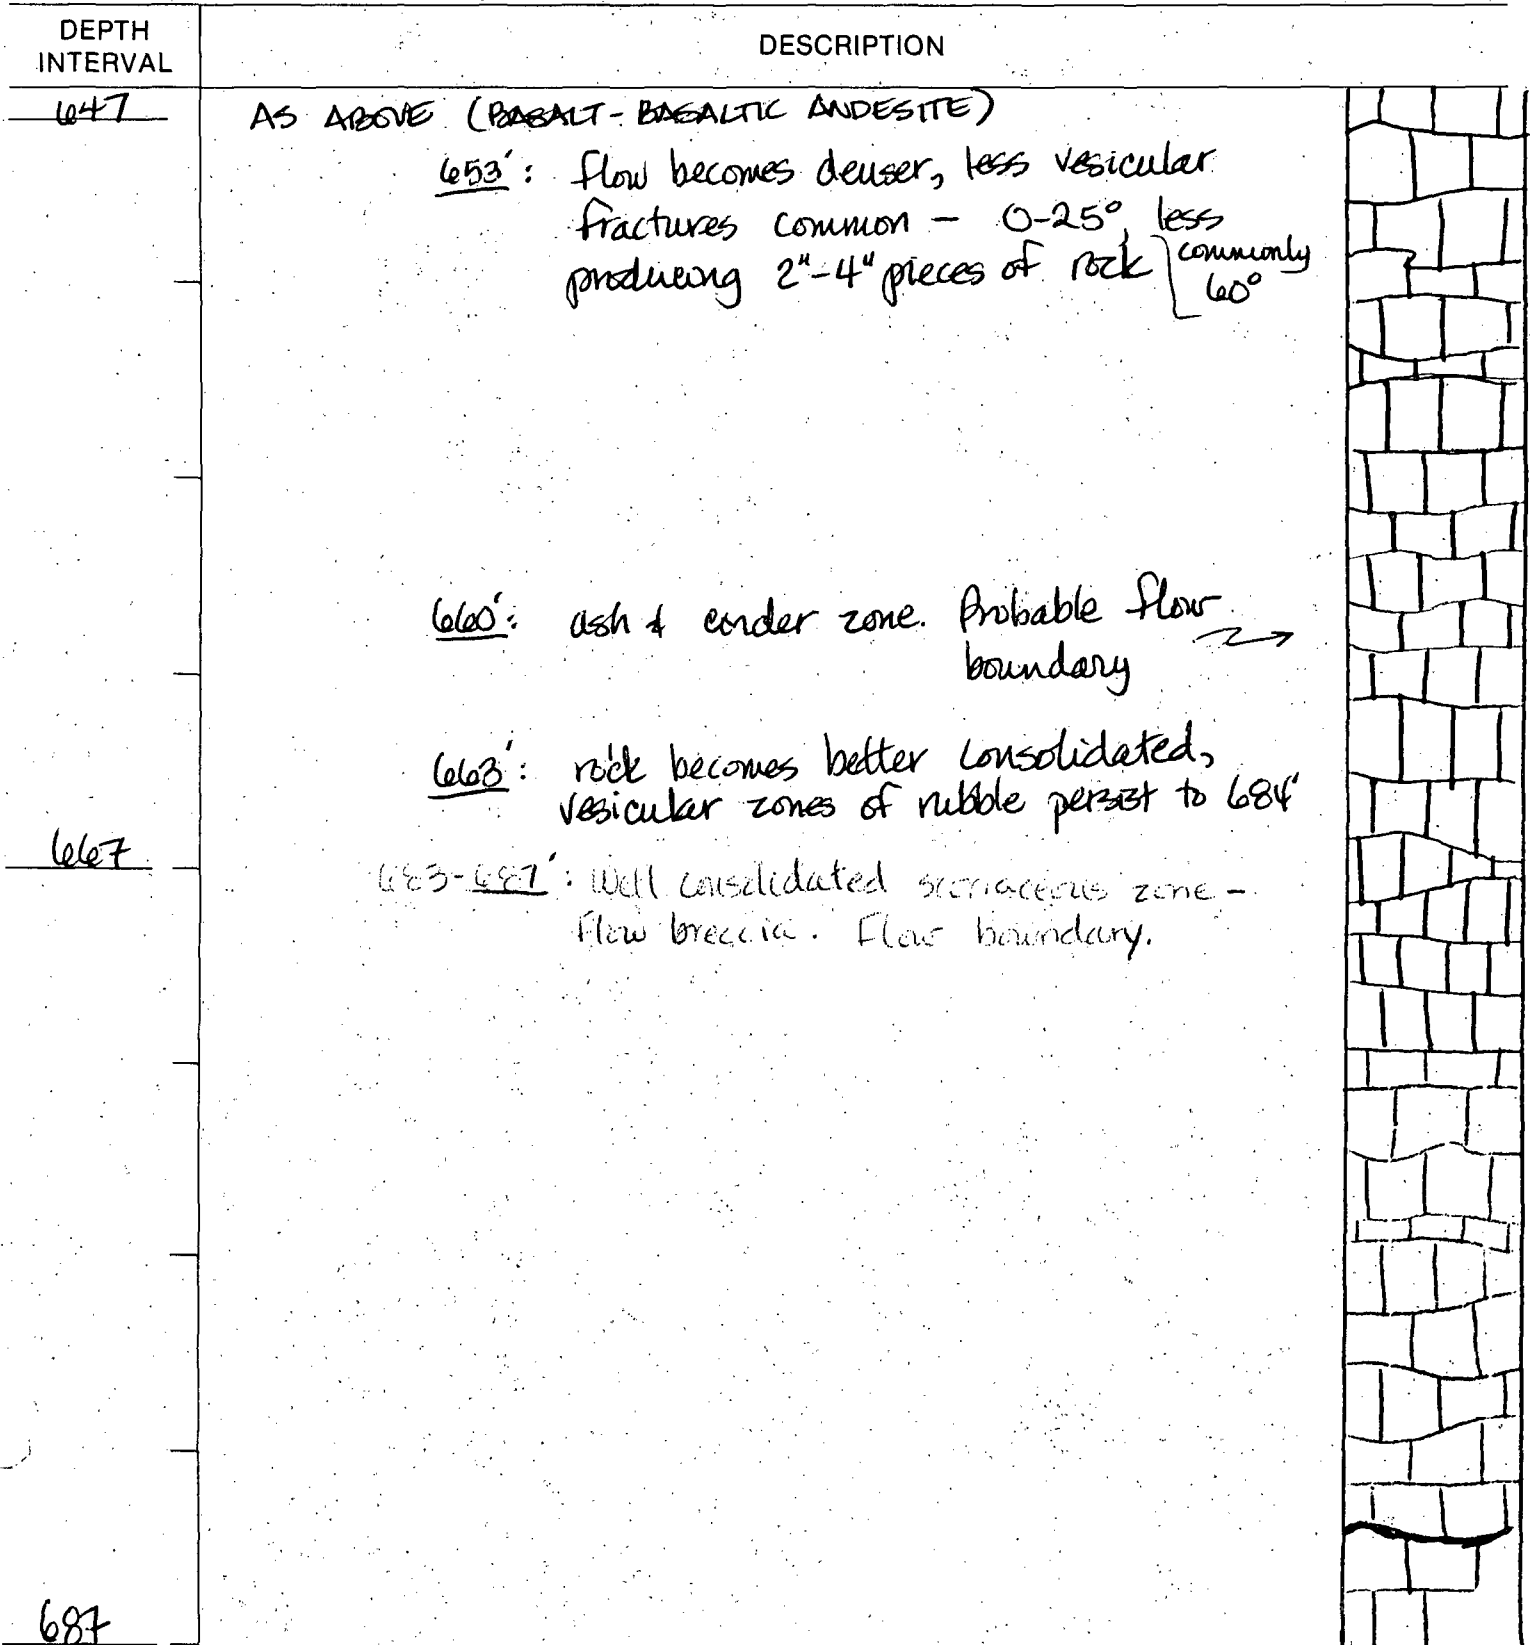 DEPTH INTERVAL
DESCRIPTION
647
AS ABOVE (BASALT - BASALTIC ANDESITE)
653': flow becomes denser, less vesicular
fractures common - 0-25°, less
commonly
60°
producing 2"-4" pieces of rock
660': ash & cinder zone. Probable flow
boundary
663': rock becomes better consolidated,
vesicular zones of rubble persist to 684'
667
683-687': Well consolidated scoriaceous zone -
Flow breccia. Flow boundary.
687